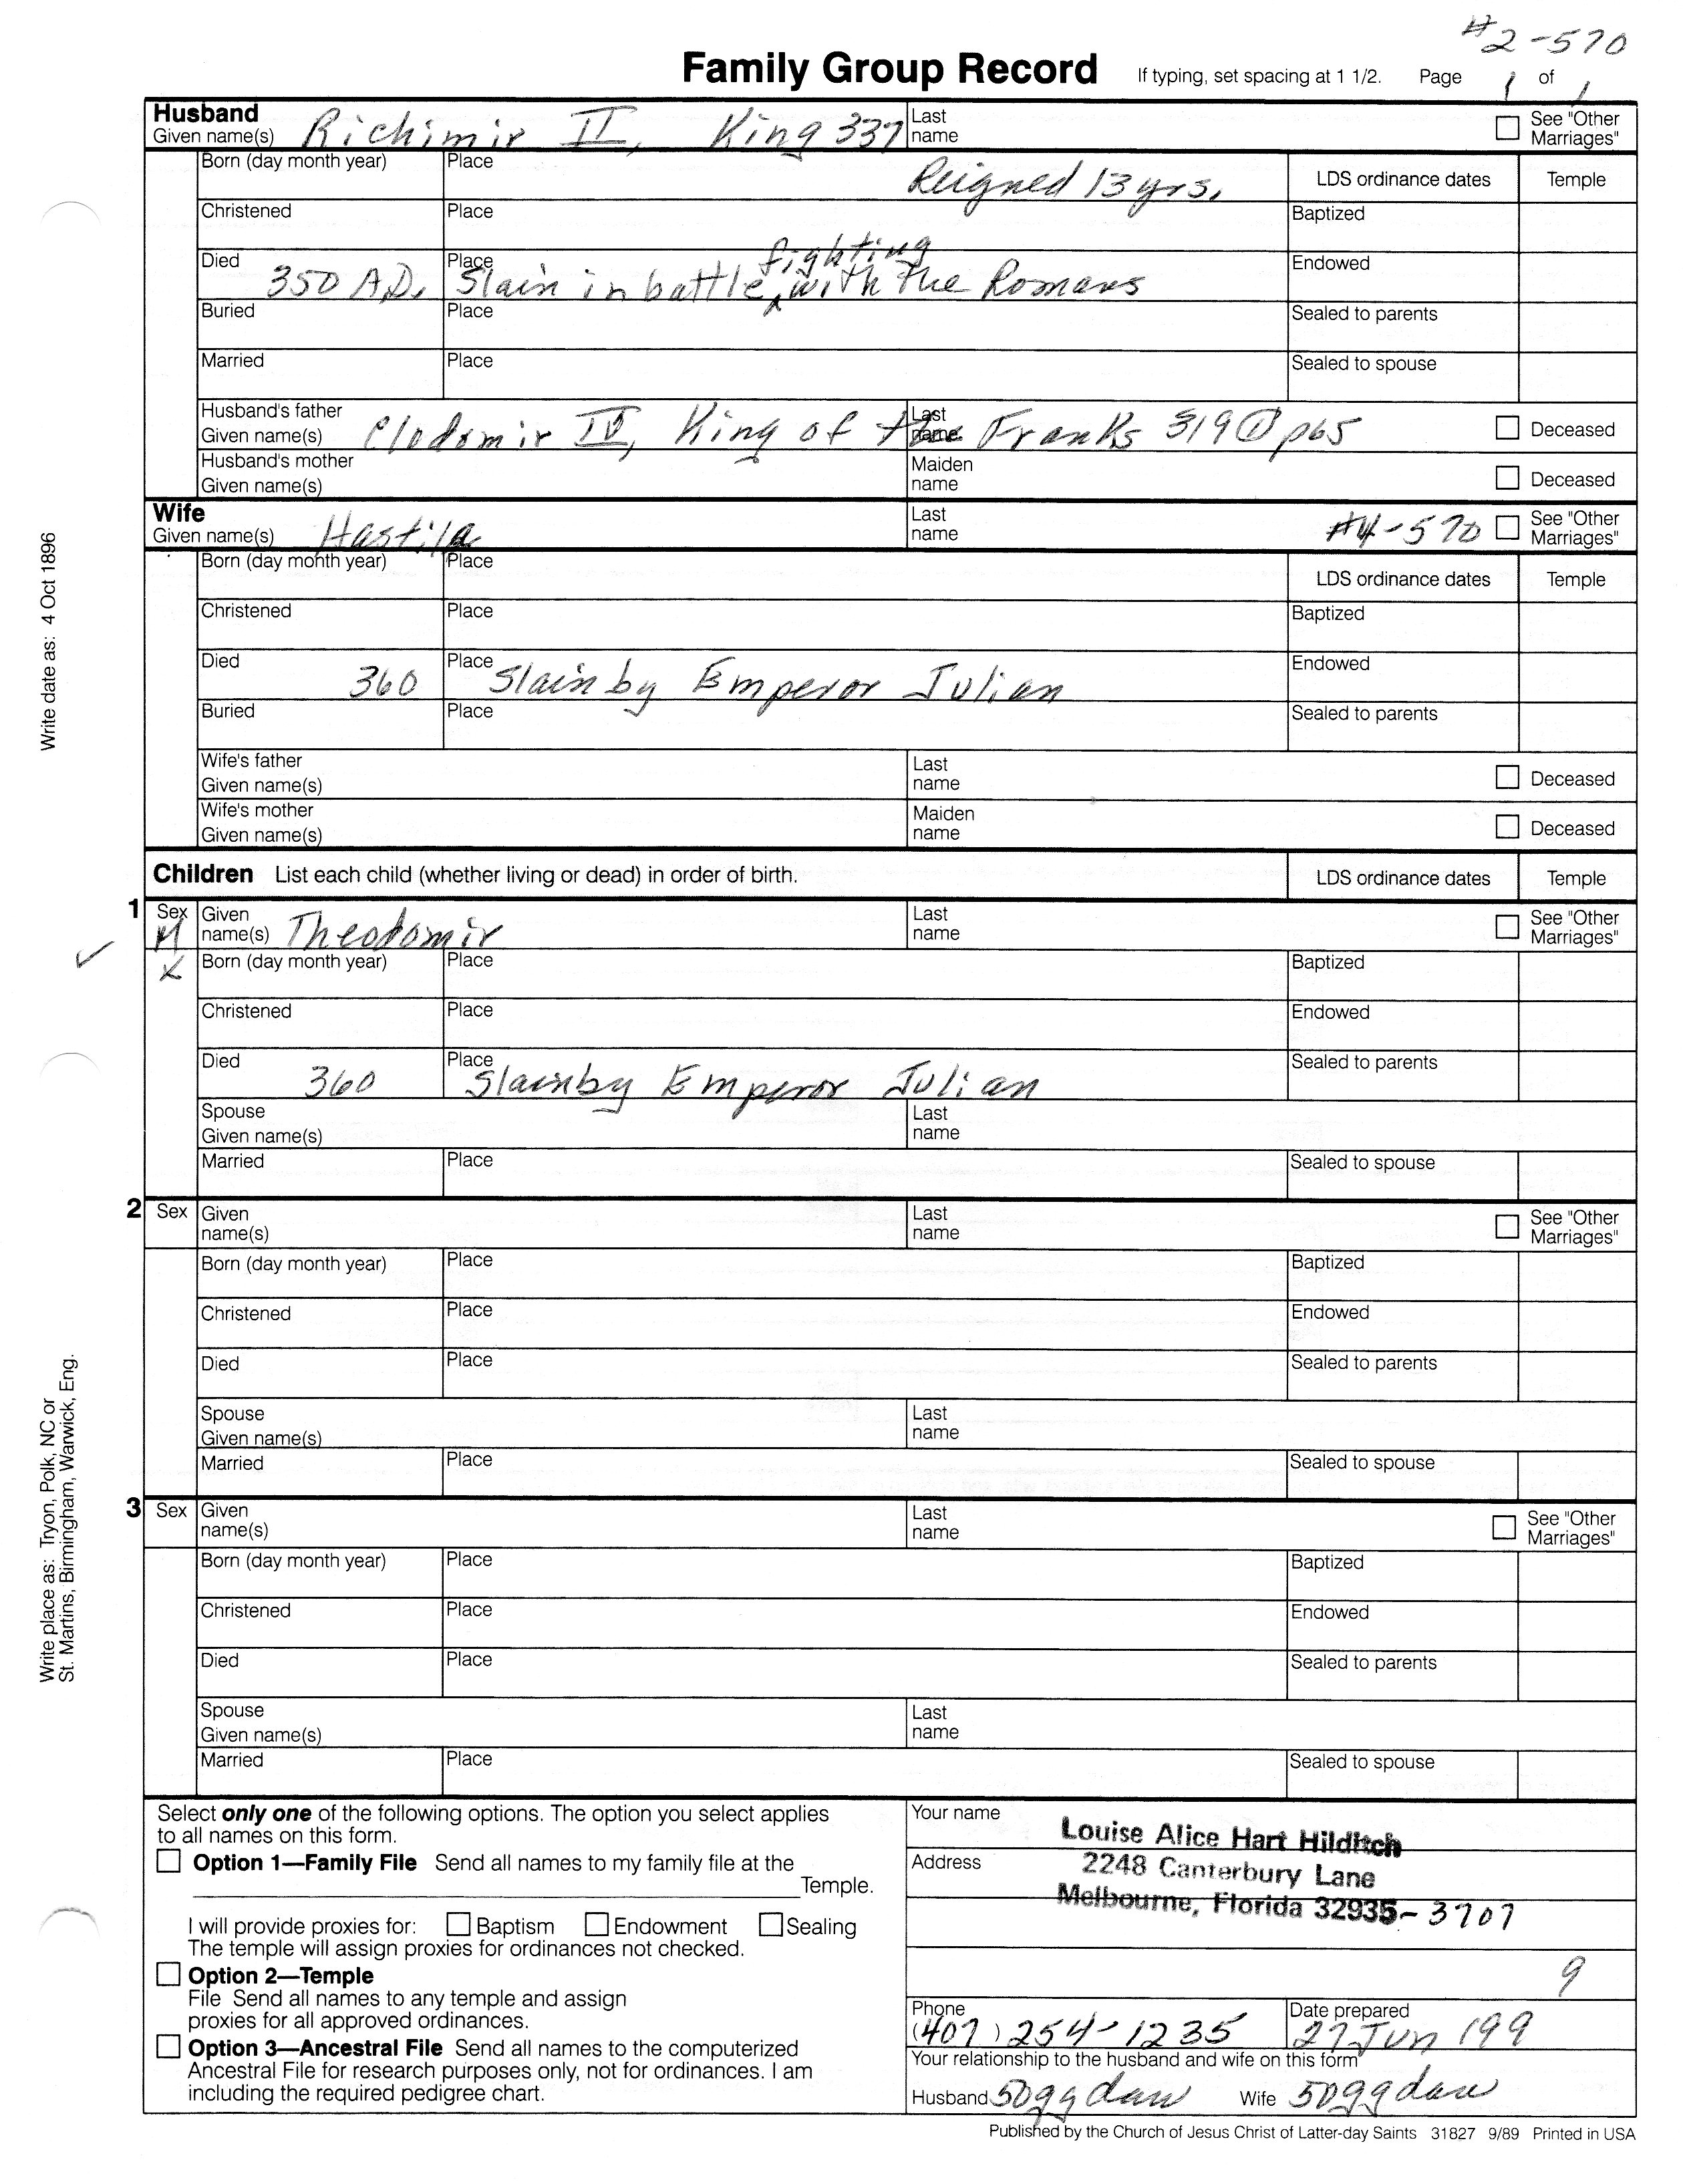 #2-570
Family Group Record If typing, set spacing at 1 1/2. Page 1 of 1
Husband
Given name(s) Richimir II, King 337 Last name See "Other Marriages"
Born (day month year) Place Reigned 13 yrs. LDS ordinance dates Temple
Christened Place Baptized
Died 350 A.D. Place Slain in battle fighting with the Romans Endowed
Buried Place Sealed to parents
Married Place Sealed to spouse
Husband's father
Given name(s) Clodomir IV, King of the Franks 319 p65 Last name Deceased
Husband's mother
Given name(s) Maiden name Deceased
Wife
Given name(s) Hastila Last name #4-570 See "Other Marriages"
Born (day month year) Place LDS ordinance dates Temple
Christened Place Baptized
Died 360 Place Slain by Emperor Julian Endowed
Buried Place Sealed to parents
Wife's father
Given name(s) Last name Deceased
Wife's mother
Given name(s) Maiden name Deceased
Children List each child (whether living or dead) in order of birth. LDS ordinance dates Temple
1 Sex M Given name(s) Theodomir Last name See "Other Marriages"
X Born (day month year) Place Baptized
Christened Place Endowed
Died 360 Place Slain by Emperor Julian Sealed to parents
Spouse
Given name(s) Last name
Married Place Sealed to spouse
2 Sex Given name(s) Last name See "Other Marriages"
Born (day month year) Place Baptized
Christened Place Endowed
Died Place Sealed to parents
Spouse
Given name(s) Last name
Married Place Sealed to spouse
3 Sex Given name(s) Last name See "Other Marriages"
Born (day month year) Place Baptized
Christened Place Endowed
Died Place Sealed to parents
Spouse
Given name(s) Last name
Married Place Sealed to spouse
Select only one of the following options. The option you select applies
to all names on this form.
Option 1—Family File Send all names to my family file at the
Temple.
I will provide proxies for: Baptism Endowment Sealing
The temple will assign proxies for ordinances not checked.
Option 2—Temple
File Send all names to any temple and assign
proxies for all approved ordinances.
Option 3—Ancestral File Send all names to the computerized
Ancestral File for research purposes only, not for ordinances. I am
including the required pedigree chart.
Your name Louise Alice Hart Hilditch
Address 2248 Canterbury Lane
Melbourne, Florida 32935-3707
9
Phone (407) 254-1235 Date prepared 27 Jun 199
Your relationship to the husband and wife on this form
Husband 50gg dau Wife 50gg dau
Published by the Church of Jesus Christ of Latter-day Saints 31827 9/89 Printed in USA
Write date as: 4 Oct 1896
Write place as: Tryon, Polk, NC or
St. Martins, Birmingham, Warwick, Eng.